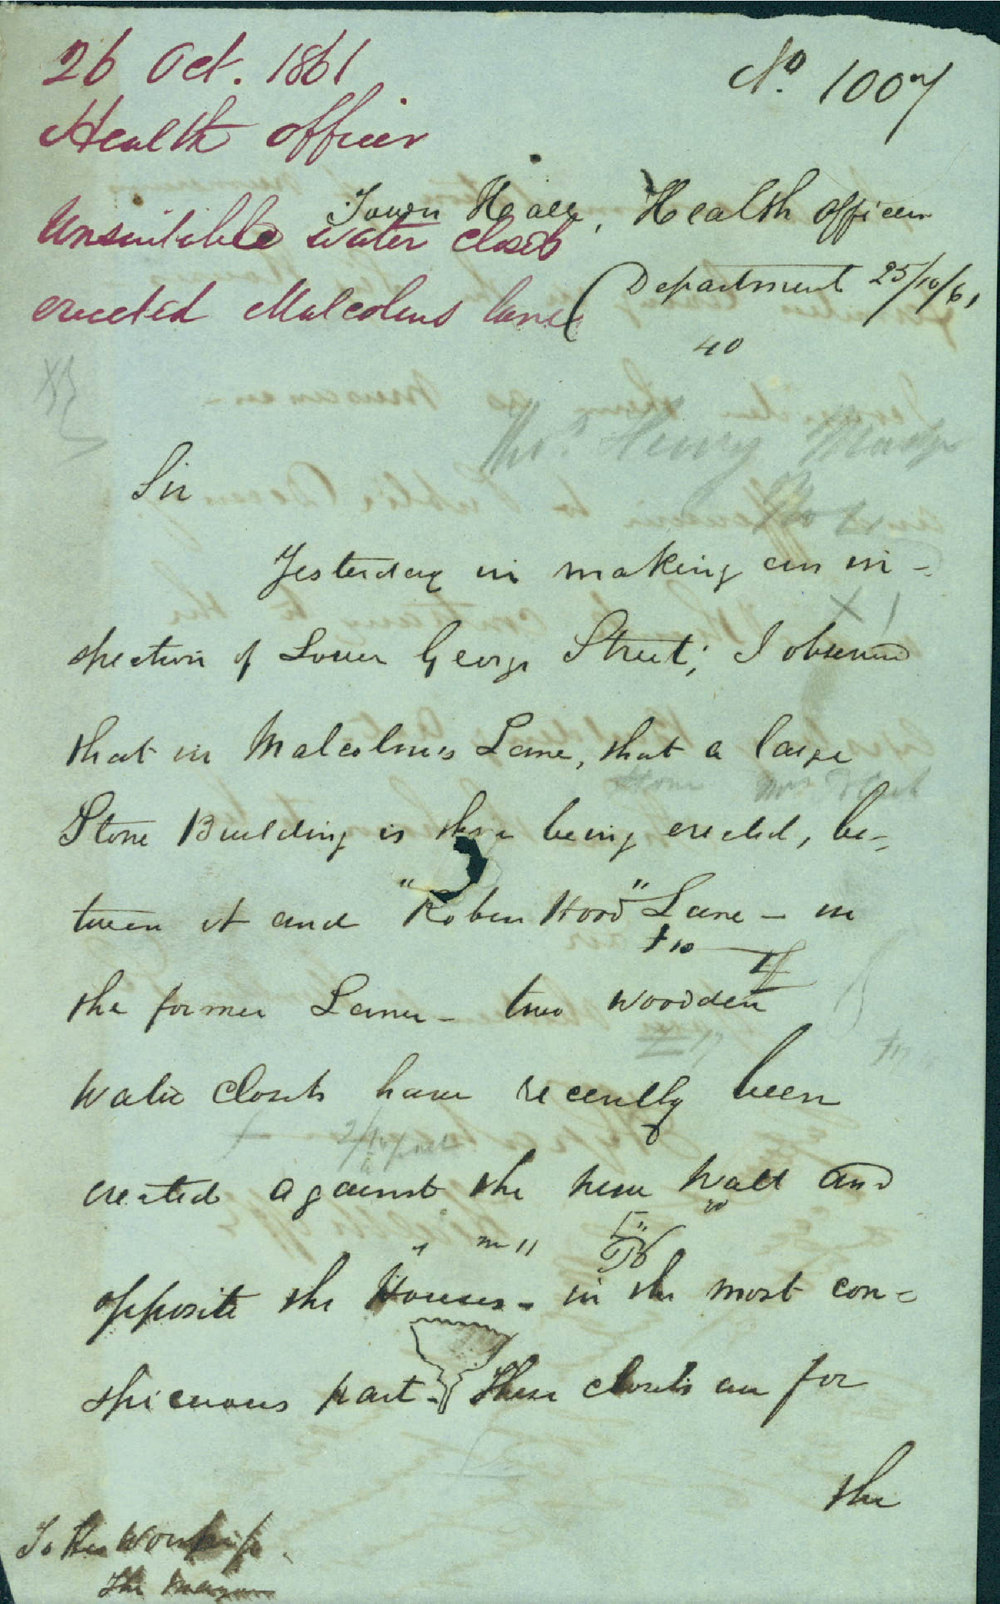 26 Oct. 1861
Health officer
Unsuitable water closets
erected Malcolms lane
No. 1007
Town Hall, Health officers
Department 25/10/61
40
Thos. Henry
Sir
Yesterday in making an in-
spection of Lower George Street; I observed
that in Malcolm's Lane, that a large
Stone Building is there being erected, be-
tween it and "Robin Hood" Lane - in
the former Lane - two wooden
Water closets have recently been
erected against the new Wall and
opposite the Houses - in the most con=
spicuous part - These closets are for
the
To His Worship
The Mayor